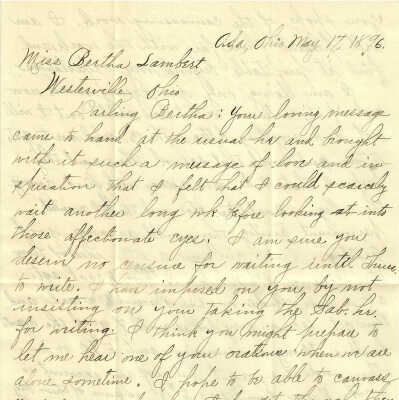 Ada, Ohio May 17, 1896.
Miss Bertha Lambert
Westerville Ohio
Darling Bertha: Your loving message
came to hand at the usual hr and brought
with it such a message of love and in
spiration that I felt that I could scarcely
wait another long wk before looking into
those affectionate eyes. I am sure you
deserve no censure for waiting until Thurs.
to write. I have imposed on you by not
insisting on your taking the Sab. hr.
for writing. I think you might prepare to
let me hear one of your orations when we are
alone sometime. I hope to be able to canvass